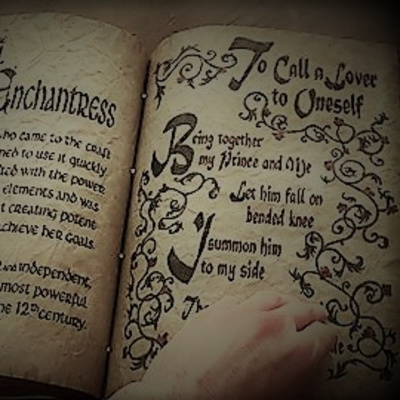 Enchantress
who came to the craft
to use it quickly.
with the power
elements and was
creating potent
achieve her goals.
and independent,
most powerful
12th century.
To Call a Lover
to Oneself
Bring together
my Prince and Me
Let him fall on
bended knee
I summon him
to my side